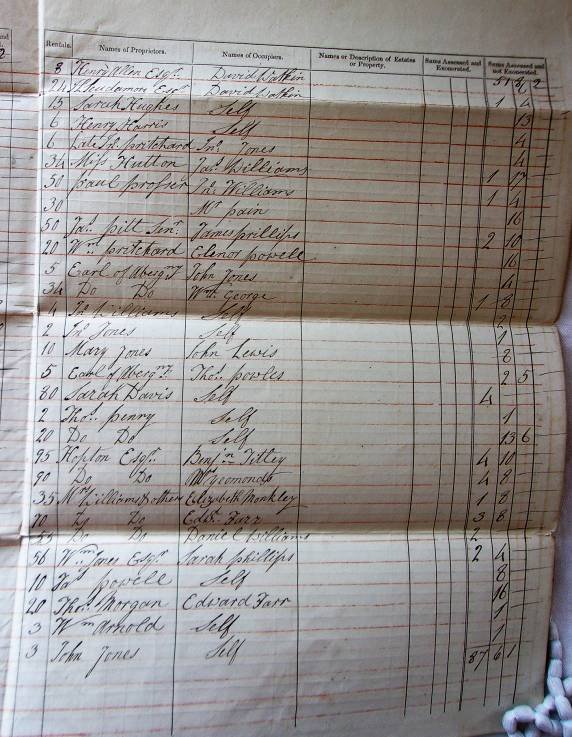 2
Rentals. Names of Proprietors. Names of Occupiers. Names or Description of Estates or Property. Sums Assessed and Exonerated. Sums Assessed and not Exonerated.
8 Henry Allen Esqr. David Watkin 51 8 2
24 Esqr. David Watkin
15 Sarah Hughes Self 1 4
6 Henry Harris Self 13
6 Late pritchard Jno. Jones 4
34 Miss Hutton Jas. Williams 4
50 paul prosser Williams 1 17
30 Mr pain 1 4
50 Jas. pitt Senr. James phillips 16
20 Wm. pritchard Elenor powell 2 10
5 Earl of Aberg. John Jones 16
34 Do Do Wm. George 4
4 Williams Self 1 8
2 Jno. Jones Self 2
10 Mary Jones John Lewis 1
5 Earl of Aberg. Thos. powles 8
80 Sarah Davis Self 2 5
2 Thos. penry Self 4
20 Do Do Self 1
95 Hopton Esqr. Benjn. Titley 13 6
90 Do Do yeomonds 4 10
35 Mr Williams & others Elizabeth Monkley 4 8
70 Do Do Edwd. Farr 1 8
55 Do Do Daniel Williams 3 8
56 Wm. Jones Esqr. Sarah phillips 2
10 Jas. powell Self 2 4
20 Thos. Morgan Edward Farr 8
3 Wm Arnold Self 16
3 John Jones Self 1
1
87 6 1